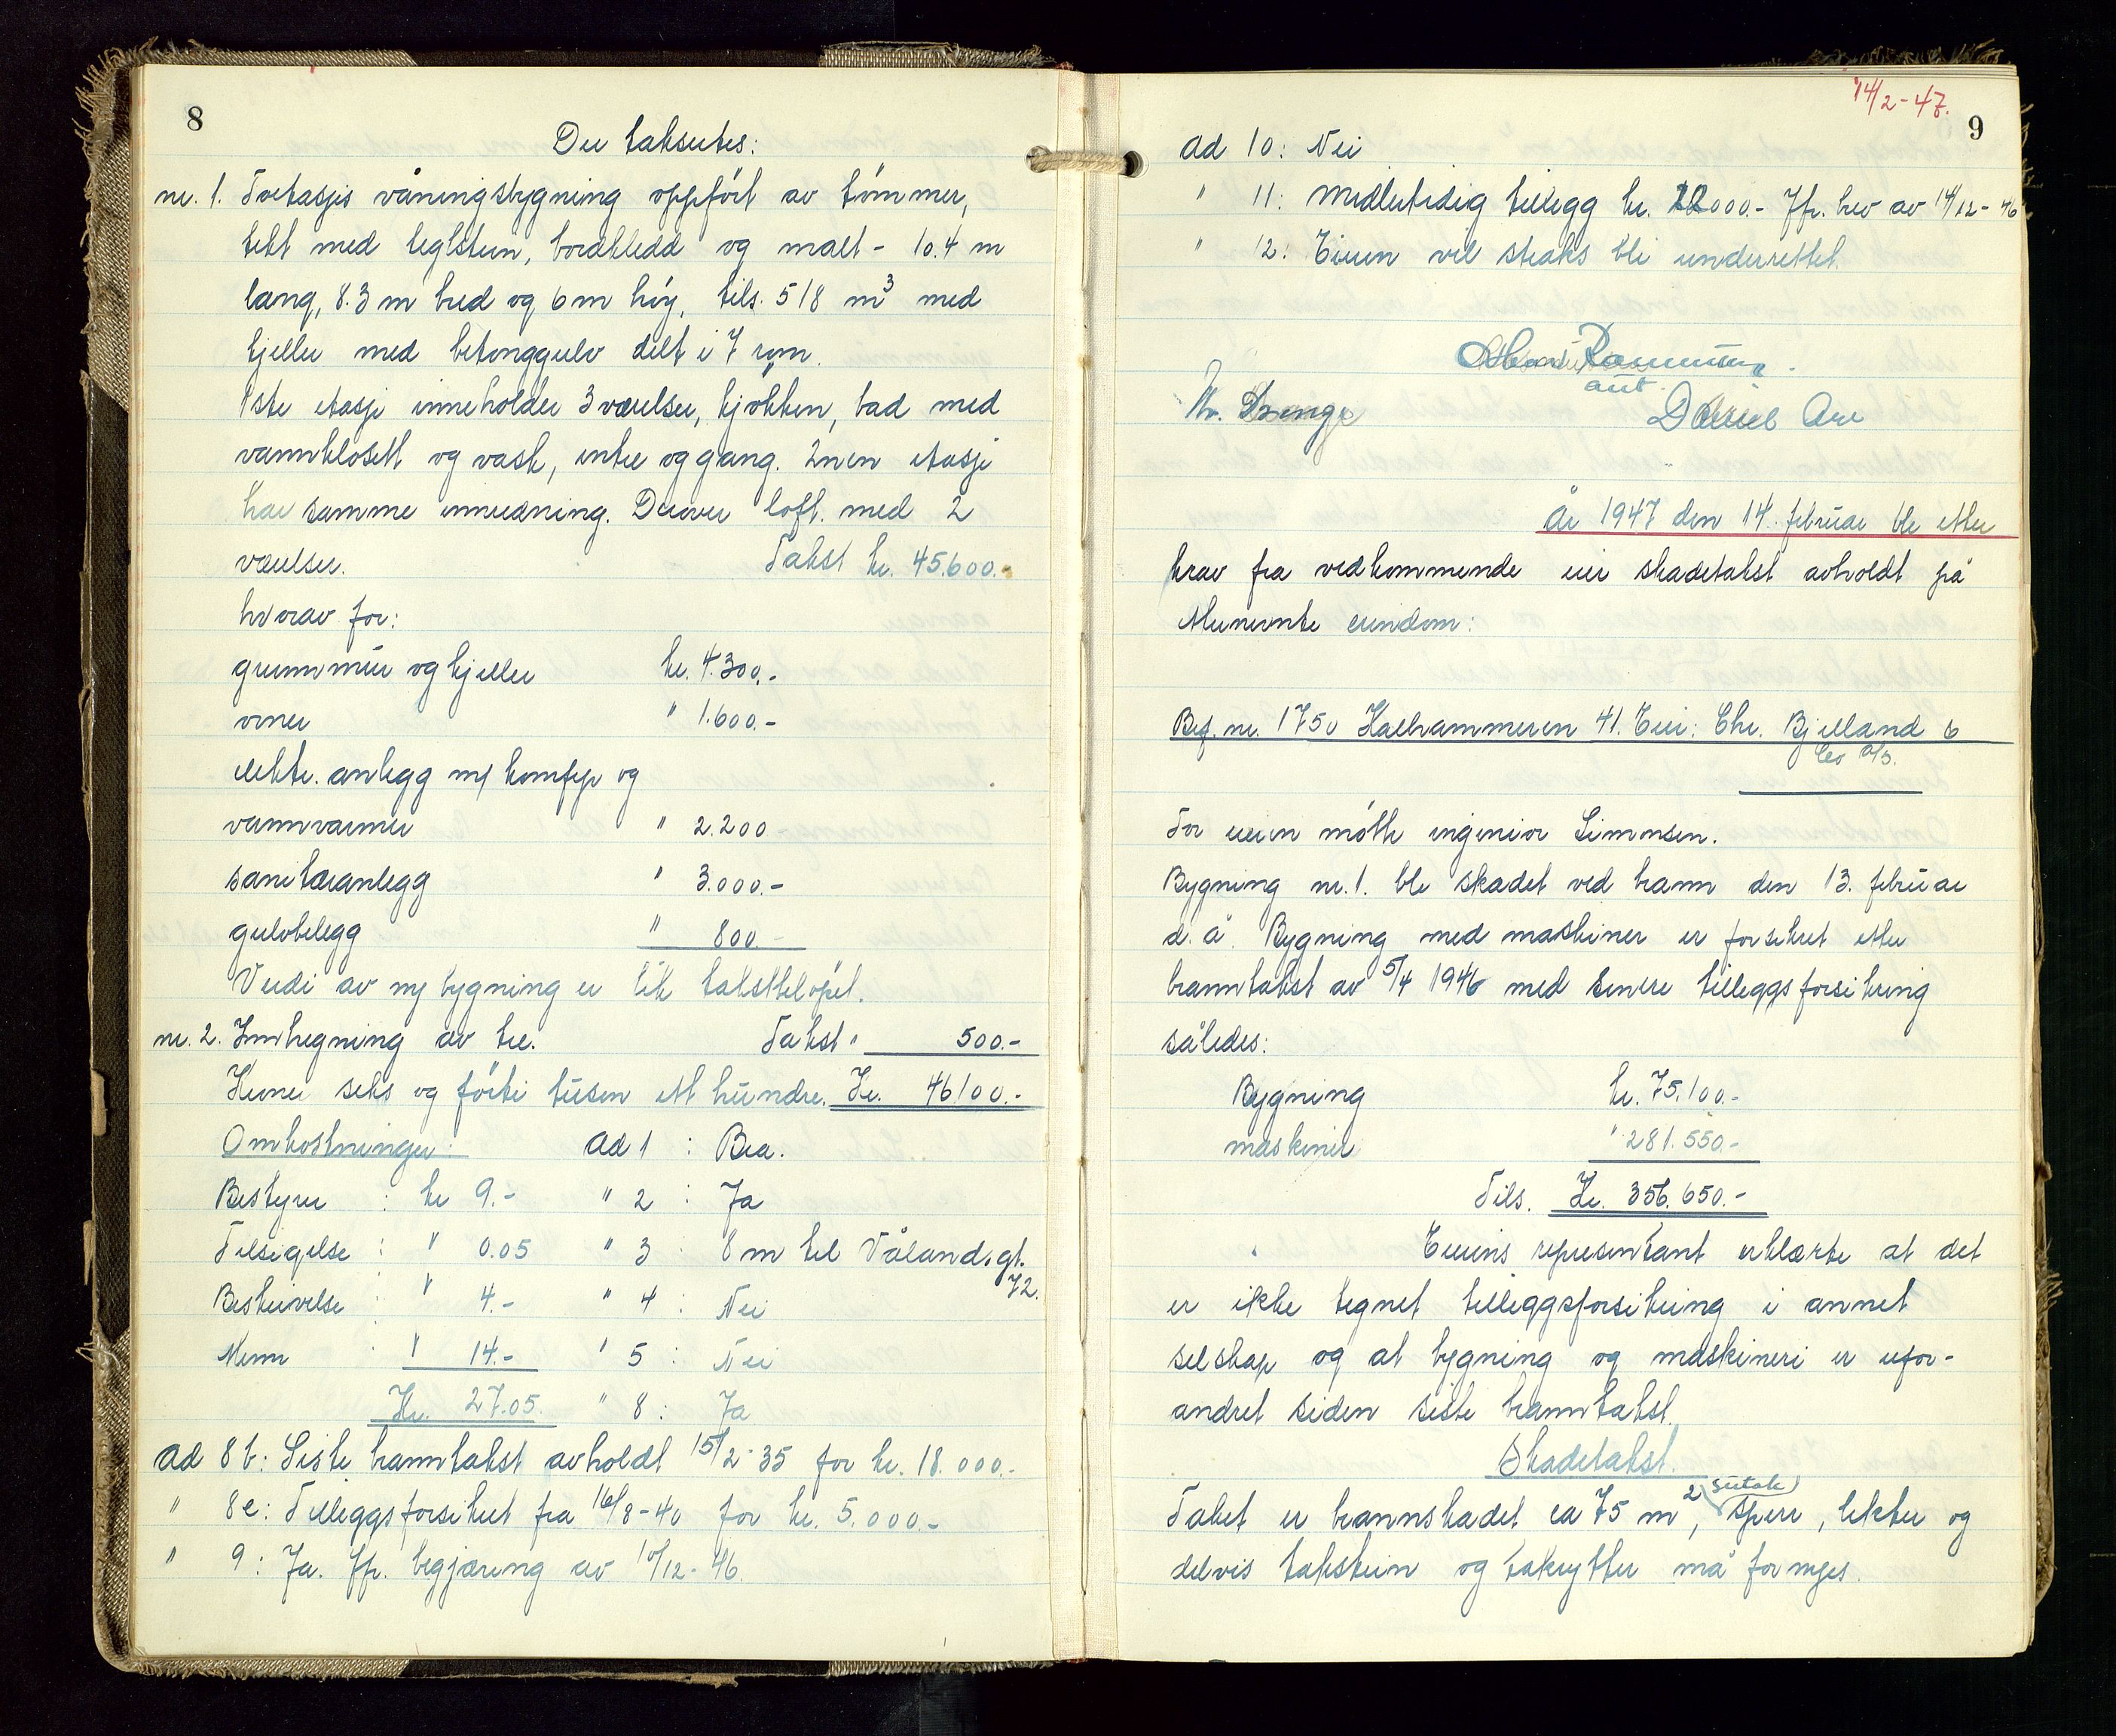 8
Der takseres:
nr. 1. Toetasjes våningsbygning oppført av tømmer,
tekt med teglstein, bordkledd og malt - 10.4 m
lang, 8.3 m bred og 6 m høy, tils. 518 m³ med
kjeller med betonggulv delt i 7 rom.
1ste etasje inneholder 3 værelser, kjøkken, bad med
vannklosett og vask, entre og gang. 2nen etasje
har samme innredning. Derover loft med 2
værelser. Takst kr. 45.600.-
hvorav for:
grunnmur og kjeller kr. 4.300.-
ovner " 1.600.-
elektr. anlegg m/ komfyr og
vannvarmer " 2.200
sanitæranlegg " 3.000.-
gulvbelegg " 800.-
Verdi av ny bygning er lik takstbeløpet.
nr. 2. Innhegning av tre. Takst " 500.-
Kroner seks og førti tusen ett hundre. Kr. 46100.-
Omkostninger: ad 1 : Bra.
Bestyrer : kr 9.- " 2 : Ja
Tilsigelse : " 0.05 " 3 : 8 m til Vålandsgt.
72.
Beskrivelse : " 4.- " 4 : Nei
Menn : " 14.- " 5 : Nei
Kr. 27.05. " 8 : Ja
ad 8 b: Siste branntakst avholdt 15/2-35 for kr. 18.000.-
" 8e: Tilleggsforsikret fra 16/8-40 for kr. 5.000.-
" 9: Ja. Jfr. begjæring av 10/12-46.
14/2-47.
9
ad 10: Nei
" 11: Midlertidig tillegg kr. 22000.- Jfr. brev av 14/12-46
" 12: Eieren vil straks bli underrettet.
Rasmussen
aut.
Daniel Are
År 1947 den 14. februar ble etter
krav fra vedkommende eier skadetakst avholdt på
etternevnte eiendom:
Bef. nr. 1750 Kalhammeren 41. Eier: Chr. Bjelland &
Co A/S.
For eieren møtte ingeniør Simonsen.
Bygning nr. 1. ble skadet ved brann den 13. februar
d. å. Bygning med maskiner er forsikret etter
branntakst av 5/4 1946 med senere tilleggsforsikring
således:
Bygning kr. 75.100.-
maskiner " 281.550.-
Tils. Kr. 356.650.-
Eierens representant erklærte at det
er ikke tegnet tilleggsforsikring i annet
selskap og at bygning og maskineri er ufor-
andret siden siste branntakst.
Skadetakst.
sutak
Taket er brannskadet ca 75 m², sperr, lekter og
delvis takstein og takrytter må fornyes.